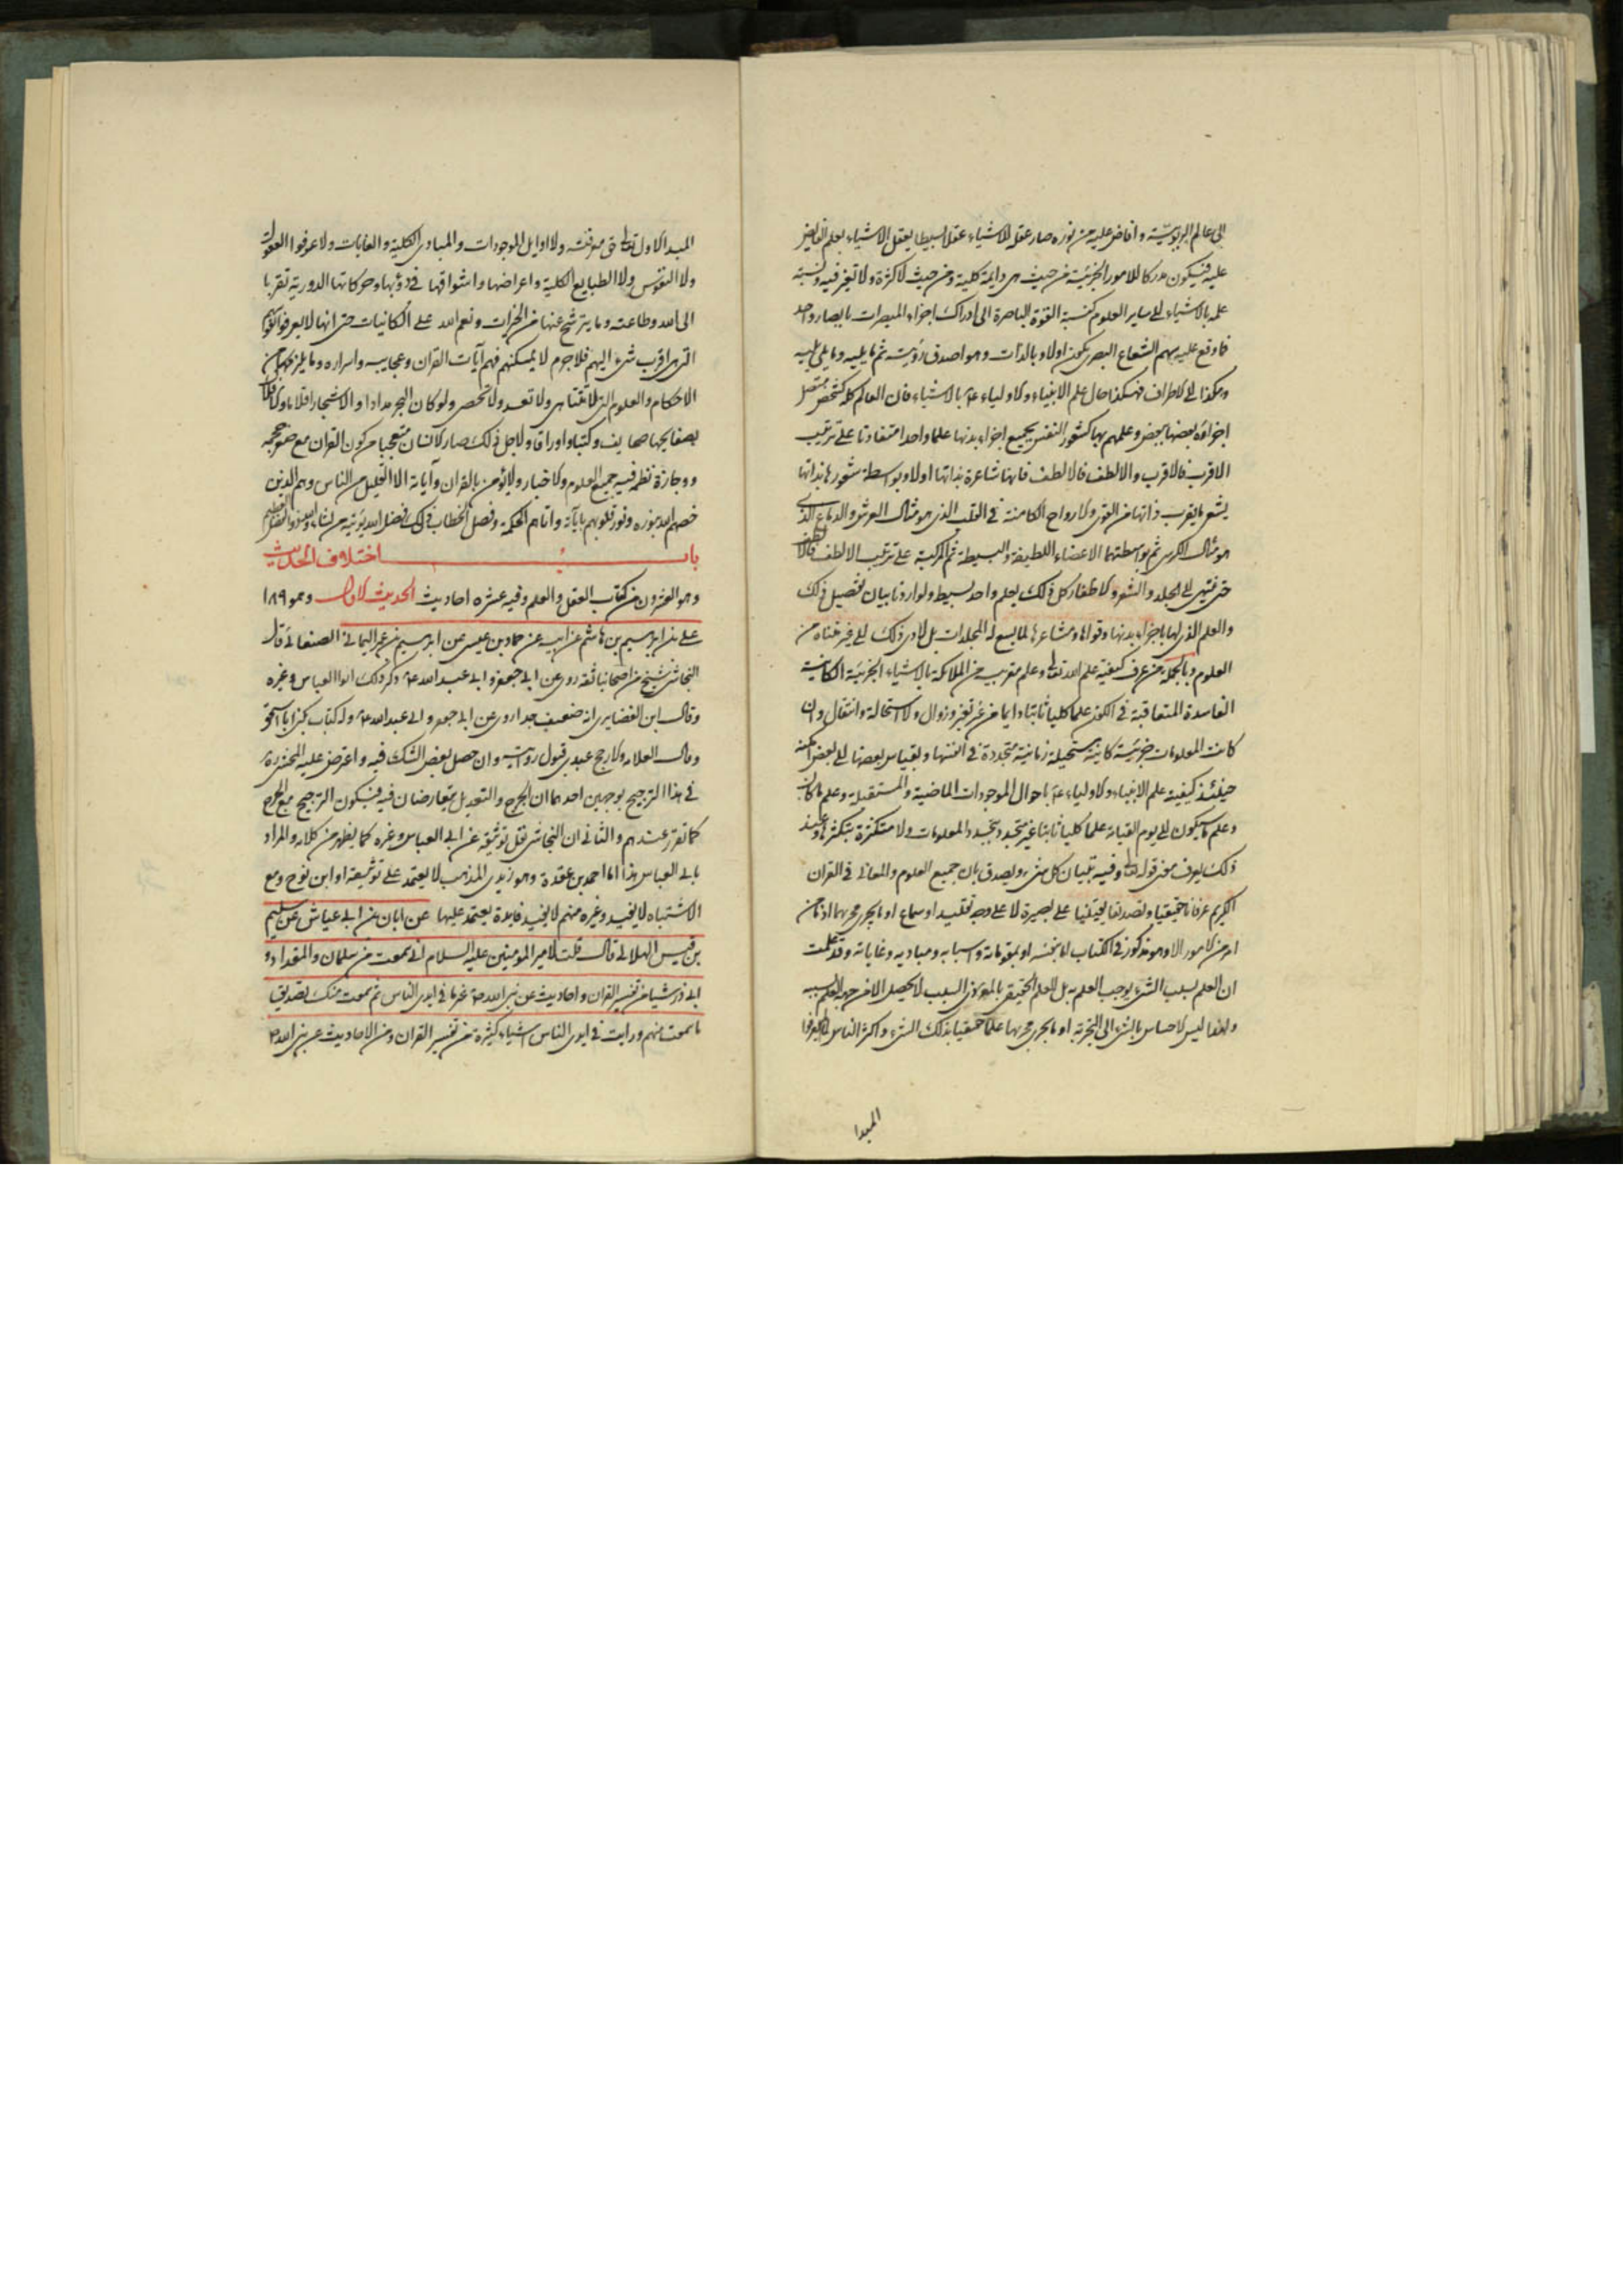 الى عالم الربوبية وافاض عليه من نوره صار عقله للاشياء عقلا بسيطا يعقل الاشياء بعلم الفايض
عليه فيكون مدركا للامور الجزئية من حيث هى دايمة كلية ومن حيث لا كثرة ولا تغير فيه ونسبة
علمه بالاشياء الى ساير العلوم كنسبة القوة الباصرة الى ادراك اجزاء المبصرات بابصار واحد
فما وقع عليه سهم الشعاع البصرى يكون اولا وبالذات وهو اصدق رؤية ثم ما يليه وما يلى يليه
وهكذا الى الاطراف فهكذا حال علم الانبياء والاولياء ع بالاشياء فان العالم كله كشخص متصل
اجزاؤه بعضها ببعض وعلمهم بها كشعور النفس بجميع اجزاء بدنها علما واحدا متفاوتا على ترتيب
الاقرب فالاقرب والالطف فالالطف فانها شاعرة بذاتها اولا وبواسطة شعورها بذاتها
يشعر بما يقرب ذاتها من القوى والارواح الكامنة فى القلب الذى هو مثال العرش والدماغ الذى
هو مثال الكرسى ثم بواسطتهما الاعضاء اللطيفة والبسيطة ثم المركبة على ترتيب الالطف فالالطف
حتى ينتهى الى الجلد والشعر والاظفار كل ذلك بعلم واحد بسيط ولو اردنا بيان تفصيل ذلك
والعلم الذى لها باجزاء بدنها وقواها ومشاعرها لما يسع له المجلدات بل لادى ذلك الى غير متناه من
العلوم وبالجملة من عرف كيفية علم الله تعالى وعلم مقربيه من الملائكة بالاشياء الجزئية الكاينة
الفاسدة المتعاقبة فى الكون علما كليا ثابتا دايما من غير تغير وزوال ولا استحالة وانتقال وان
كانت المعلومات جزئية كاينة مستحيلة زمانية متجددة فى انفسها وبقياس بعضها الى بعض امكنه
حينئذ كيفية علم الانبياء والاولياء ع باحوال الموجودات الماضية والمستقبلة وعلم ما كان
وعلم ما سيكون الى يوم القيامة علما كليا ثابتا غير متجدد بتجدد المعلومات ولا متكثرة بتكثرها وعند
ذلك يعرف معنى قوله تعالى وفيه تبيان كل شىء ويصدق بان جميع العلوم والمعانى فى القران
الكريم عرفانا حقيقيا وتصديقا يقينيا على بصيرة لا على وجه تقليد او سماع او ما يجرى مجريهما اذ ما من
امر من الامور الا وهو مذكور فى الكتاب اما بنفسه او بمقوماته واسبابه ومباديه وغاياته وقد علمت
ان العلم بسبب الشىء يوجب العلم به بل العلم الحقيقى بالمعرفة ذى السبب لا يحصل الا من جهة العلم بسببه
وايضا ليس الاحساس بالشىء الى التجربة او ما يجرى مجريها علما حقيقيا بذلك الشىء واكثر الناس لم يعرفوا
المبدا
المبدا الاول تعالى حق معرفته ولا اوايل الموجودات والمبادى الكلية والغايات ولا عرفوا العقول
ولا النفوس ولا الطبايع الكلية واعراضها واشواقها فى دؤبها وحركاتها الدورية تقربا
الى الله وطاعته وما يترشح عنها من الخيرات ونعم الله على الكائنات حتى انها لا يعرفوا نفوسهم
التى هى اقرب شىء اليهم فلا جرم لا يمكنهم فهم آيات القران وعجايبه واسراره وما يلزمها من
الاحكام والعلوم التى لا تتناهى ولا تعد ولا تحصر ولو كان البحر مدادا والاشجار اقلاما والافلاك
بصفايحها صحايف وكتبا واوراقا ولاجل ذلك صار الانسان متعجبا من كون القران مع صغر حجمه
ووجازة نظمه فيه جميع العلوم والاخبار ولا يؤمن بالقران وآياته الا القليل من الناس وهم الذين
خصهم الله بنوره ونور قلوبهم بآياته واتاهم الحكمة وفصل الخطاب ذلك فضل الله يؤتيه من يشاء والله ذو الفضل العظيم
باب اختلاف الحديث
وهو العشرون من كتاب العقل والعلم وفيه عشره احاديث الحديث الاول وهو ١٨٩
على بن ابراهيم بن هاشم عن ابيه عن حماد بن عيسى عن ابراهيم بن عمر اليمانى الصنعانى قال
النجاشى شيخ من اصحابنا ثقة روى عن ابى جعفر وابى عبد الله ع ذكر ذلك ابو العباس وغيره
وقال ابن الغضايرى انه ضعيف جدا روى عن ابى جعفر وابى عبد الله ع وله كتاب يكنى ابا اسحق
وقال العلامة والارجح عندى قبول روايته وان حصل بعض الشك فيه واعترض عليه المحشى ره
فى هذا الترجيح بوجهين احدهما ان الجرح والتعديل يتعارضان فيه فيكون الترجيح مع الجرح
كما تقرر عندهم والثانى ان النجاشى نقل توثيقه عن ابى العباس وغيره كما يظهر من كلامه والمراد
بابى العباس هذا اما احمد بن عقدة وهو زيدى المذهب لا يعتمد على توثيقه او ابن نوح ومع
الاشتباه لا يفيد وغيره منهم لا يفيد فايدة يعتمد عليها عن ابان بن ابى عياش عن سليم
بن قيس الهلالى قال قلت لامير المومنين عليه السلام انى سمعت من سلمان والمقداد و
ابى ذر شيئا من تفسير القران واحاديث عن نبى الله ص غير ما فى ايدى الناس ثم سمعت منك تصديق
ما سمعت منهم ورايت فى ايدى الناس اشياء كثيرة من تفسير القران ومن الاحاديث عن نبى الله ص